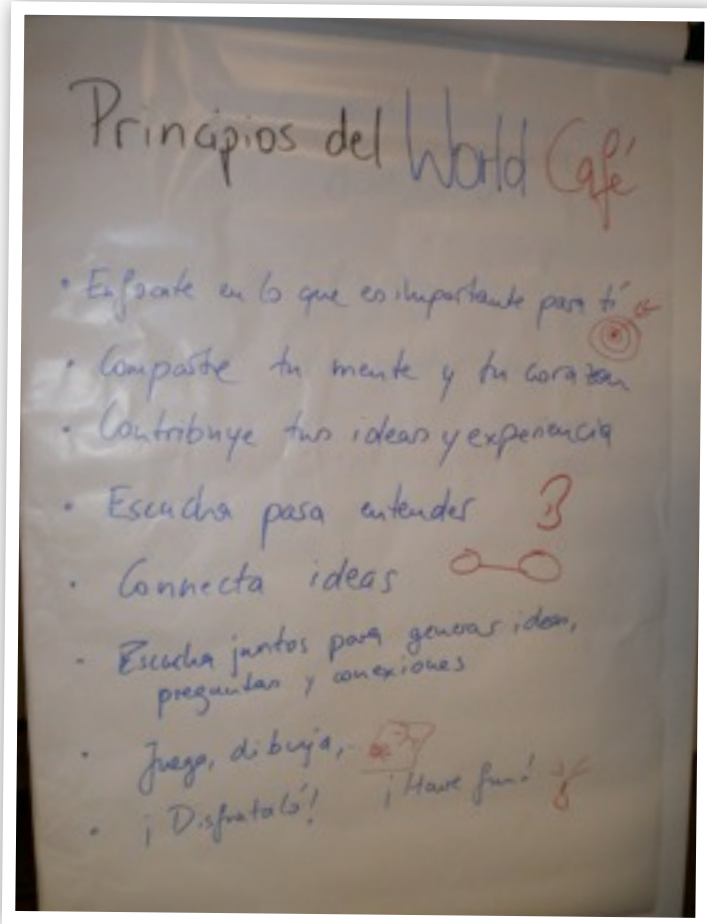 Principios del World Café
• Enfocate en lo que es importante para ti
• Comparte tu mente y tu corazon
• Contribuye tus ideas y experiencia
• Escucha para entender
• Connecta ideas
• Escucha juntos para generar ideas,
preguntas y conexiones
• Juega, dibuja,
• ¡Disfrutaló! ¡Have fun!